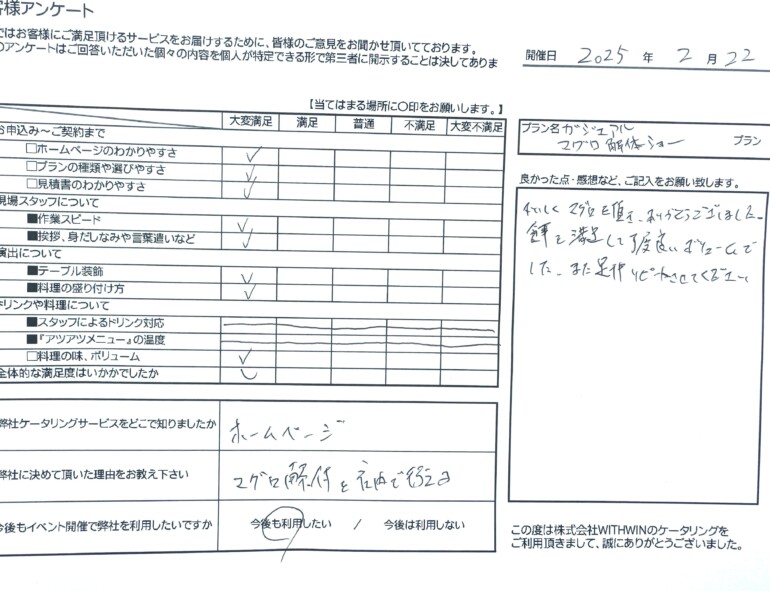 客様アンケート
ではお客様にご満足頂けるサービスをお届けするために、皆様のご意見をお聞かせ頂いております。
のアンケートはご回答いただいた個々の内容を個人が特定できる形で第三者に開示することは決してありま
開催日 2025 年 2 月 22
【当てはまる場所に〇印をお願いします。】
大変満足 満足 普通 不満足 大変不満足
お申込み～ご契約まで
□ホームページのわかりやすさ
□プランの種類や選びやすさ
□見積書のわかりやすさ
現場スタッフについて
■作業スピード
■挨拶、身だしなみや言葉遣いなど
演出について
■テーブル装飾
■料理の盛り付け方
ドリンクや料理について
■スタッフによるドリンク対応
■『アツアツメニュー』の温度
□料理の味、ボリューム
全体的な満足度はいかかでしたか
プラン名 カジュアル
マグロ解体ショー プラン
良かった点・感想など、ご記入をお願い致します。
マグロを頂き、ありがとうございました。
満足して丁度良いボリュームで
した。また是非リピートさせてください
弊社ケータリングサービスをどこで知りましたか ホームページ
弊社に決めて頂いた理由をお教え下さい マグロ解体を社内で
今後もイベント開催で弊社を利用したいですか 今後も利用したい / 今後は利用しない
この度は株式会社WITHWINのケータリングを
ご利用頂きまして、誠にありがとうございました。